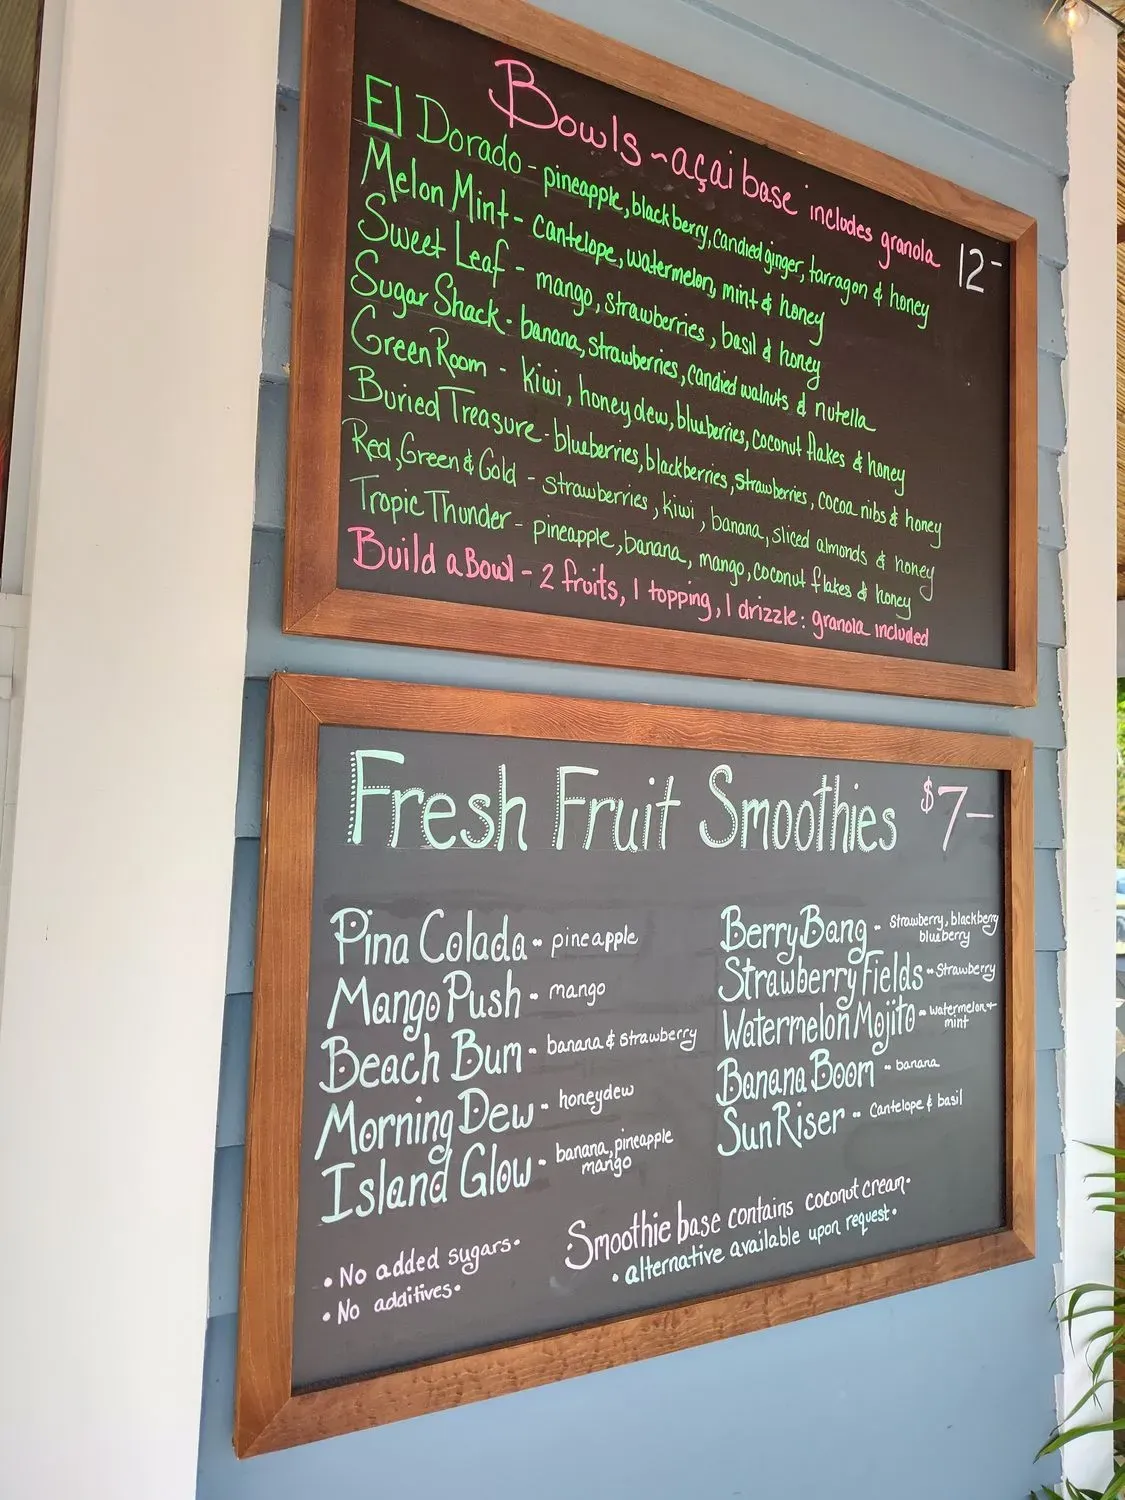 Bowls ~ açai base includes granola 12-
El Dorado - pineapple, blackberry, candied ginger, tarragon & honey
Melon Mint - cantelope, watermelon, mint & honey
Sweet Leaf - mango, strawberries, basil & honey
Sugar Shack - banana, strawberries, candied walnuts & nutella
Green Room - kiwi, honeydew, blueberries, coconut flakes & honey
Buried Treasure - blueberries, blackberries, strawberries, cocoa nibs & honey
Red, Green & Gold - strawberries, kiwi, banana, sliced almonds & honey
Tropic Thunder - pineapple, banana, mango, coconut flakes & honey
Build a Bowl - 2 fruits, 1 topping, 1 drizzle: granola included
Fresh Fruit Smoothies $7-
Pina Colada - pineapple
Mango Push - mango
Beach Bum - banana & strawberry
Morning Dew - honeydew
Island Glow - banana, pineapple
mango
Berry Bang - strawberry, blackberry
blueberry
Strawberry Fields - strawberry
Watermelon Mojito - watermelon +
mint
Banana Boom - banana
Sun Riser - Cantelope & basil
• No added sugars •
• No additives •
• Smoothie base contains coconut cream •
• alternative available upon request •